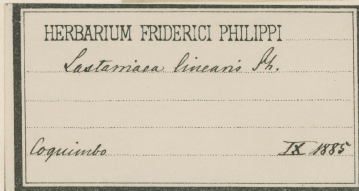 HERBARIUM FRIDERICI PHILIPPI
Lastarriaea linearis Ph.
Coquimbo IX 1885